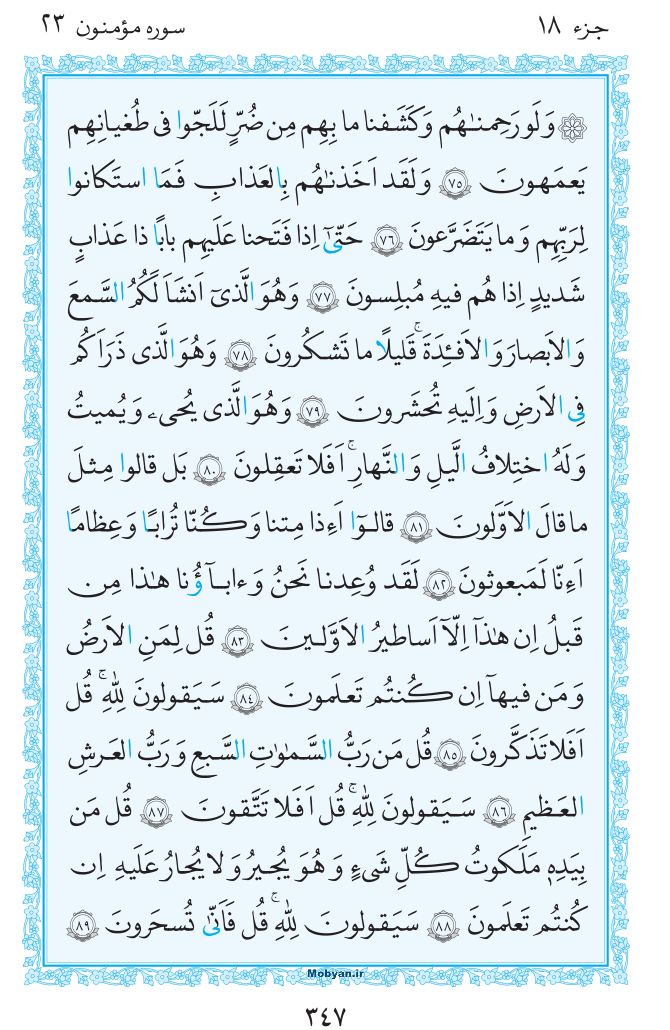 جزء ۱۸
سوره مؤمنون ۲۳
وَلَو رَحِمنـٰهُم وَكَشَفنا ما بِهِم مِن ضُرٍّ لَلَجّوا فی طُغیانِهِم
یَعمَهونَ ﴿۷۵﴾ وَلَقَد اَخَذنـٰهُم بِالعَذابِ فَمَا استَكانوا
لِرَبِّهِم وَما یَتَضَرَّعونَ ﴿۷۶﴾ حَتّىٰٓ اِذا فَتَحنا عَلَیهِم بابًا ذا عَذابٍ
شَدیدٍ اِذا هُم فیهِ مُبلِسونَ ﴿۷۷﴾ وَهُوَ الَّذیٓ اَنشَاَ لَكُمُ السَّمعَ
وَالاَبصارَ وَالاَفـِٔدَةَ ۚ قَلیلًا ما تَشكُرونَ ﴿۷۸﴾ وَهُوَ الَّذی ذَرَاَكُم
فِی الاَرضِ وَاِلَیهِ تُحشَرونَ ﴿۷۹﴾ وَهُوَ الَّذی یُحیۦ وَیُمیتُ
وَلَهُ اختِلافُ الَّیلِ وَالنَّهارِ ۚ اَفَلا تَعقِلونَ ﴿۸۰﴾ بَل قالوا مِثلَ
ما قالَ الاَوَّلونَ ﴿۸۱﴾ قالوٓا اَءِذا مِتنا وَكُنّا تُرابًا وَعِظامًا
اَءِنّا لَمَبعوثونَ ﴿۸۲﴾ لَقَد وُعِدنا نَحنُ وَءابآؤُنا هـٰذا مِن
قَبلُ اِن هـٰذآ اِلّآ اَساطیرُ الاَوَّلینَ ﴿۸۳﴾ قُل لِمَنِ الاَرضُ
وَمَن فیهآ اِن كُنتُم تَعلَمونَ ﴿۸۴﴾ سَیَقولونَ لِلّٰهِ ۚ قُل
اَفَلا تَذَكَّرونَ ﴿۸۵﴾ قُل مَن رَبُّ السَّمـٰوٰتِ السَّبعِ وَرَبُّ العَرشِ
العَظیمِ ﴿۸۶﴾ سَیَقولونَ لِلّٰهِ ۚ قُل اَفَلا تَتَّقونَ ﴿۸۷﴾ قُل مَن
بِیَدِهٖ مَلَكوتُ كُلِّ شَیءٍ وَهُوَ یُجیرُ وَلا یُجارُ عَلَیهِ اِن
كُنتُم تَعلَمونَ ﴿۸۸﴾ سَیَقولونَ لِلّٰهِ ۚ قُل فَاَنّىٰ تُسحَرونَ ﴿۸۹﴾
Mobyan.ir
۳۴۷